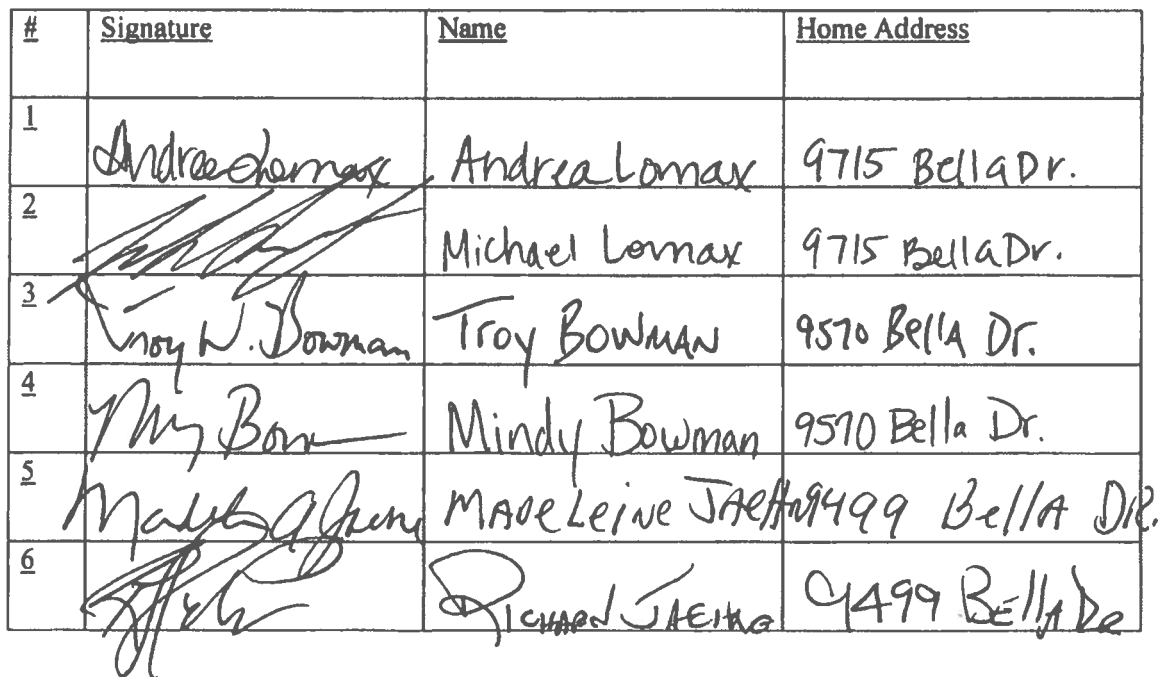 # Signature Name Home Address
1 Andrea Lomax Andrea Lomax 9715 Bella Dr.
2 Michael Lomax 9715 Bella Dr.
3 Troy W. Bowman Troy BOWMAN 9570 Bella Dr.
4 Mindy Bowman 9570 Bella Dr.
5 MADELEINE 9499 Bella DR.
6 RICHARD 9499 BELLA DR